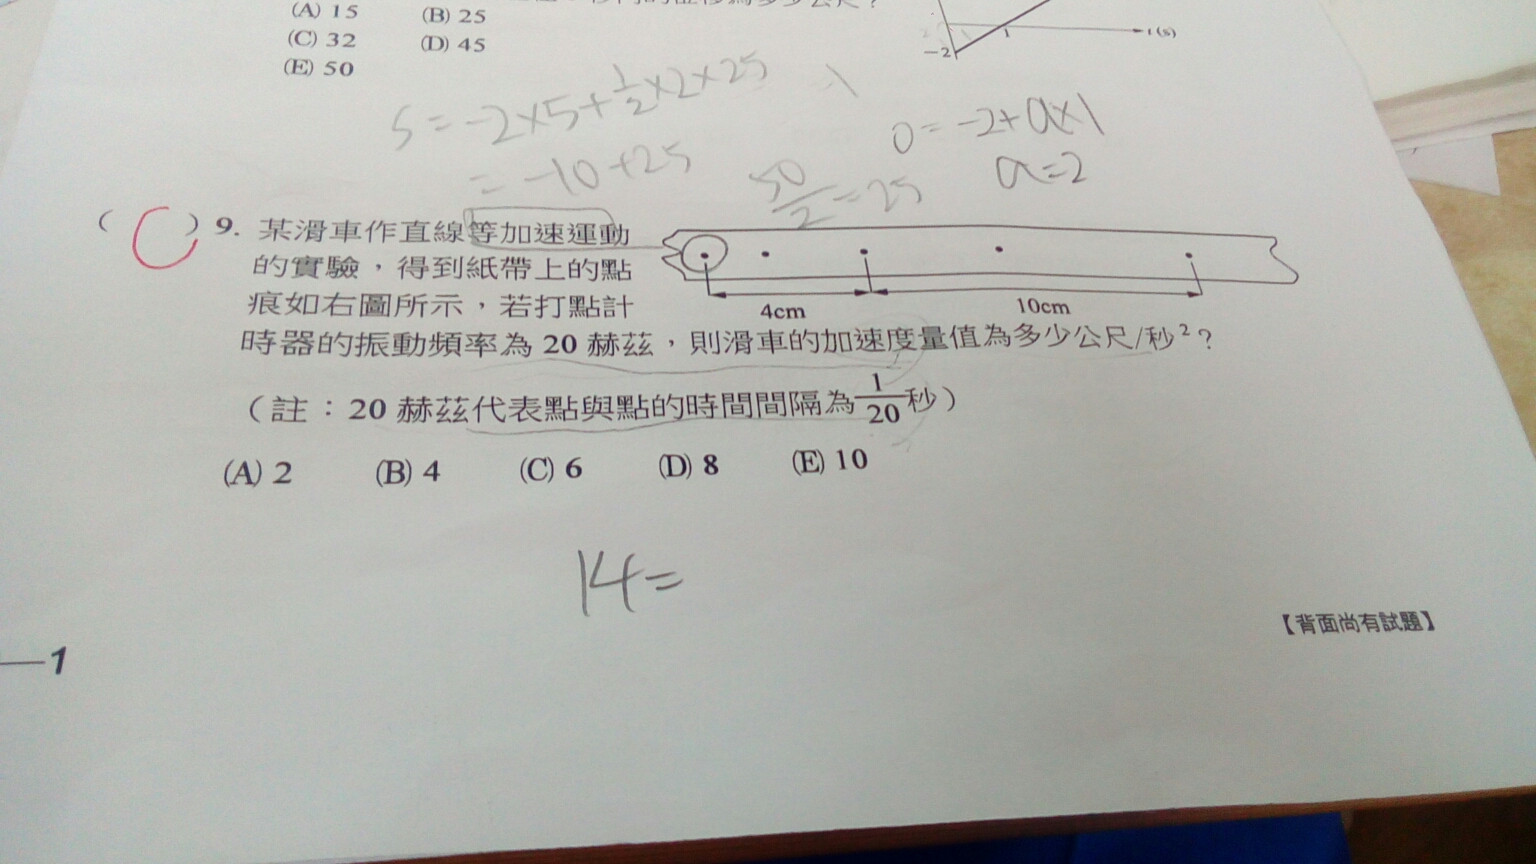 (A) 15 (B) 25
(C) 32 (D) 45
(E) 50
-2 1 t(s)
S = -2×5+½×2×25
= -10+25
50/2 = 25
0 = -2+a×1
a=2
( C ) 9. 某滑車作直線等加速運動
的實驗,得到紙帶上的點
痕如右圖所示,若打點計
時器的振動頻率為 20 赫茲,則滑車的加速度量值為多少公尺/秒²?
4cm 10cm
(註:20 赫茲代表點與點的時間間隔為1/20秒)
(A) 2 (B) 4 (C) 6 (D) 8 (E) 10
14=
【背面尚有試題】
—1